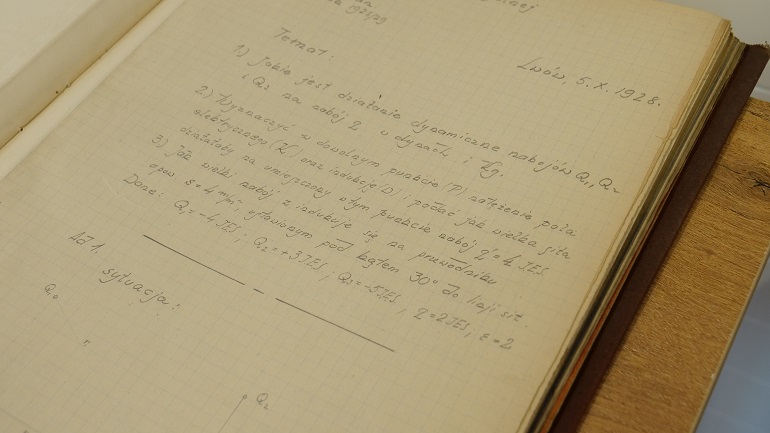 1928/29
Lwów, 5. X. 1928.
Temat:
1) Jakie jest działanie dynamiczne nabojów Q1, Q2
i Q3 na nabój 2 w dynach i kg.
2) Wyznaczyć w dowolnym punkcie (P) natężenie pola
elektrycznego (K) oraz indukcję (D) i podać jak wielka siła
działałaby na umieszczony w tym punkcie nabój 2'= 4 JES
3) Jak wielki nabój z indukuje się na przewodniku
o pow. s = 4 mm² ustawionym pod kątem 30° do linji sił.
Dane: Q1 = -4 JES; Q2 = +3 JES; Q3 = -5 JES, 2 = 2 JES; ε = 2
Ad 1. sytuacja:
Q1
Q2